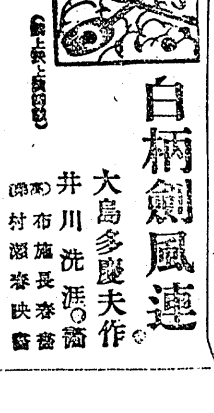 白柄劍風連
大島多慶夫作。
井川洗涯。畵
布施長春畵
村瀬春映畵